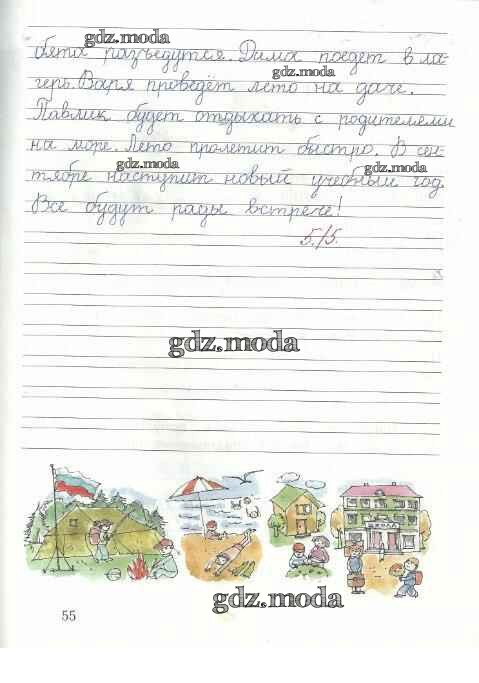 gdz.moda
бята разъедутся. Дима поедет в ла-
gdz.moda
герь. Варя проведёт лето на даче.
Павлик будет отдыхать с родителями
на море. Лето пролетит быстро. В сен-
gdz.moda
gdz.moda
тябре наступит новый учебный год.
Все будут рады встрече!
5./5.
gdz.moda
ШКОЛА
gdz.moda
55